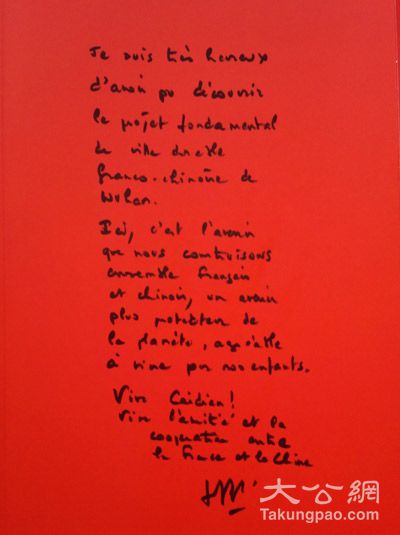 Je suis très heureux
d'avoir pu découvrir
le projet fondamental
de ville durable
franco-chinoise de
Wuhan.
Ici, c'est l'avenir
que nous construisons
ensemble français
et chinois, un avenir
plus protecteur de
la planète, agréable
à vivre pour nos enfants.
Vive Caidian!
Vive l'amitié et la
coopération entre
la France et la Chine
大公網
Takungpao.com